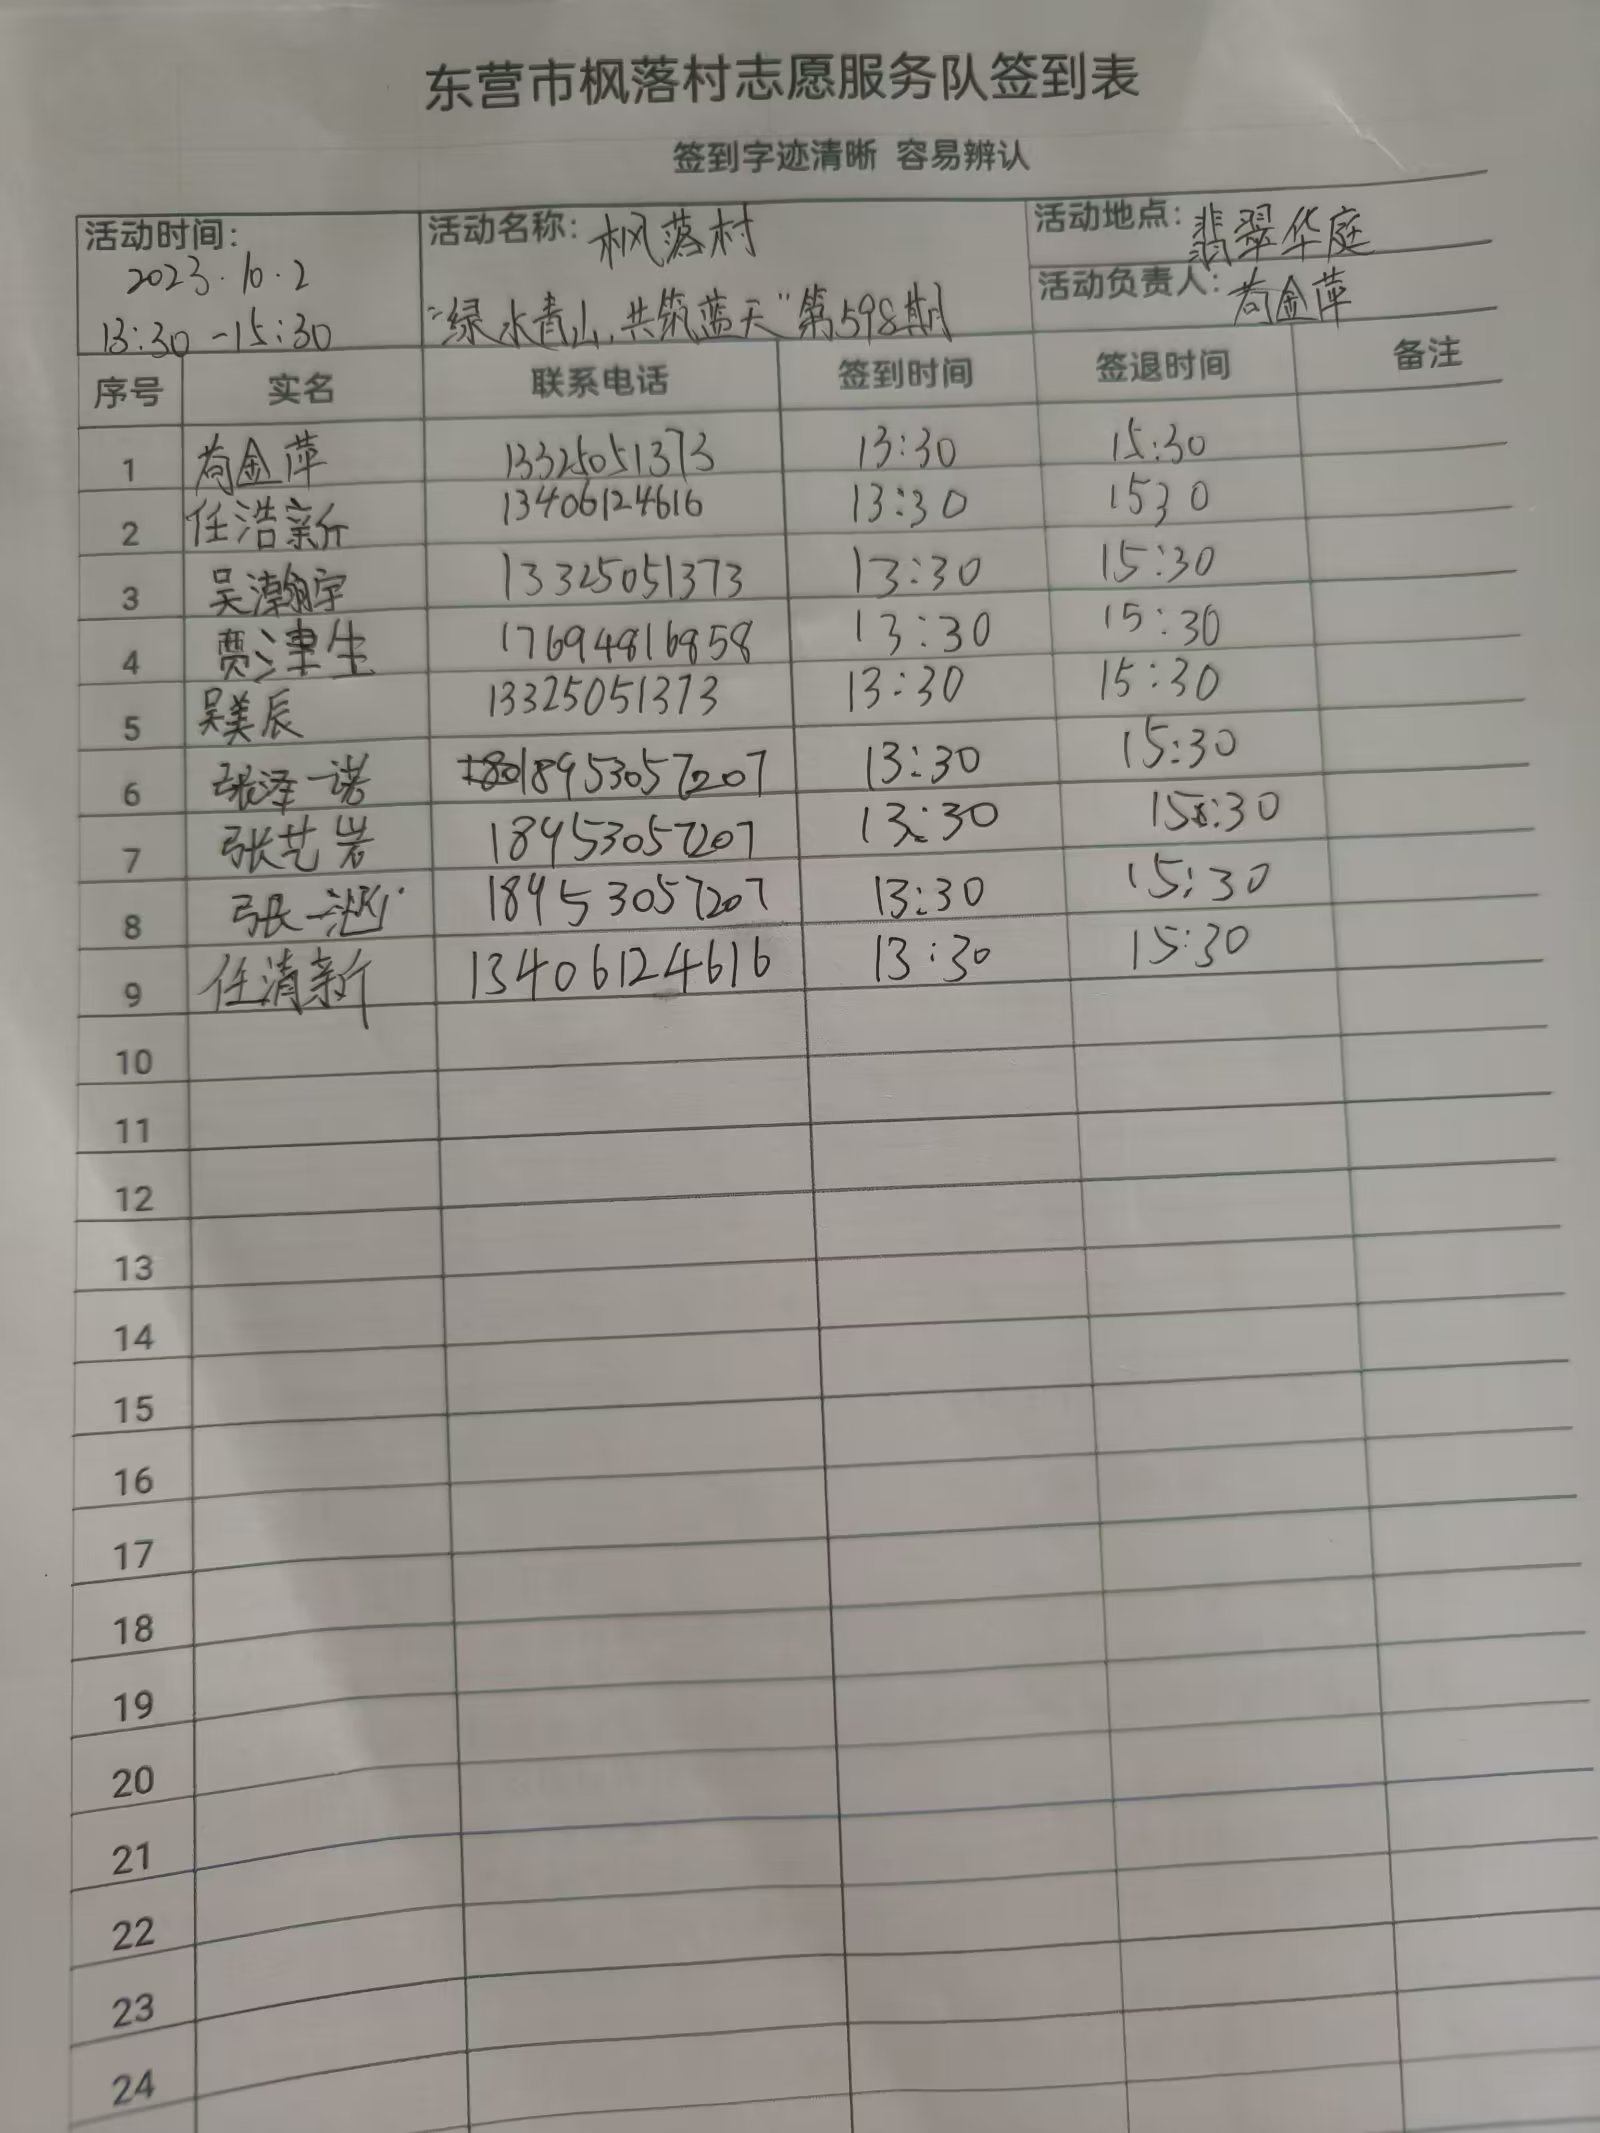 东营市枫落村志愿服务队签到表
签到字迹清晰 容易辨认
活动时间:
2023.10.2
13:30-15:30
活动名称: 枫落村
"绿水青山,共筑蓝天"第598期
活动地点: 翡翠华庭
活动负责人: 苟金萍
序号 实名 联系电话 签到时间 签退时间 备注
1 苟金萍 13325051373 13:30 15:30
2 任浩新 13406124616 13:30 1530
3 吴瀚宇 13325051373 13:30 15:30
4 贾津生 17694816858 13:30 15:30
5 吴美辰 13325051373 13:30 15:30
6 张泽一诺 18953057207 13:30 15:30
7 张艺岩 18953057207 13:30 15:30
8 张一 18953057207 13:30 15:30
9 任清新 13406124616 13:30 15:30
10
11
12
13
14
15
16
17
18
19
20
21
22
23
24